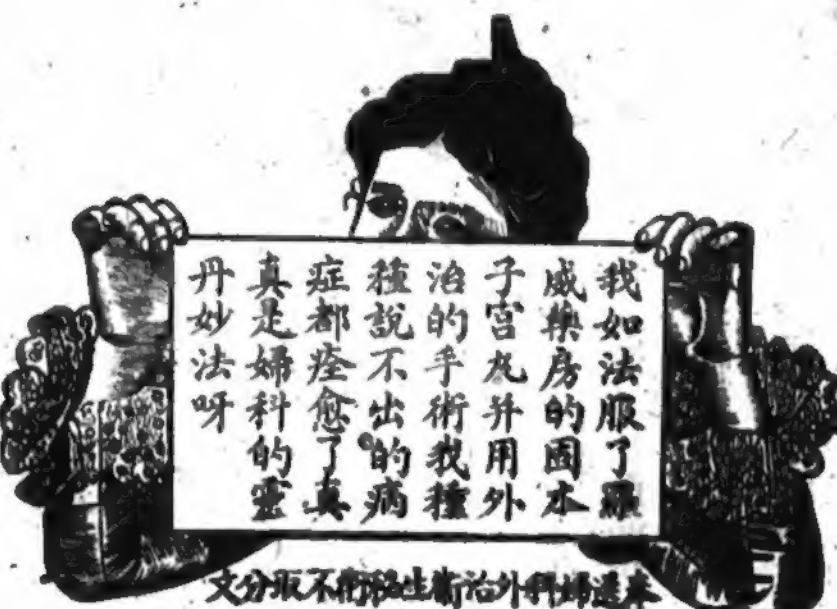 我如法服了羅
威藥房的固水
子宮丸并用外
治的手術我種
種說不出的病
症都痊愈了真
真是婦科的靈
丹妙法呀
送婦科外治衛生秘術不取分文